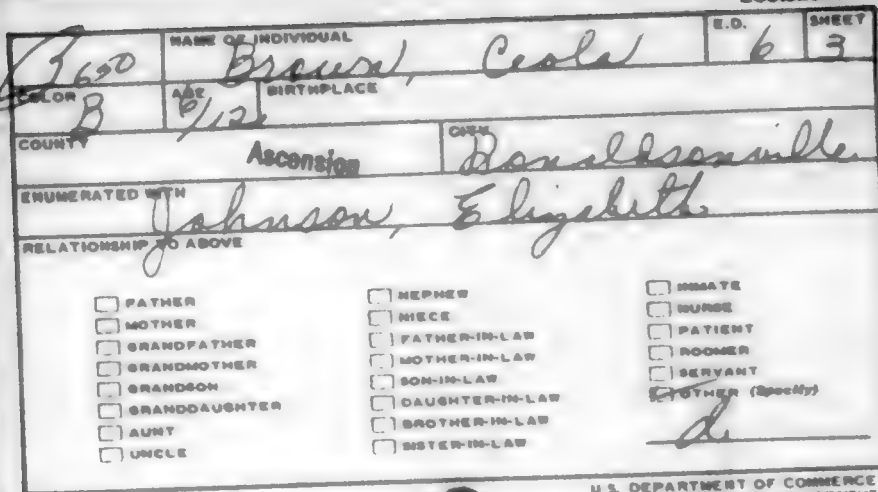 B 650 NAME OF INDIVIDUAL E.D. SHEET
Brown, Ceola 6 3
COLOR AGE BIRTHPLACE
B 6/12
COUNTY CITY
Ascension Donaldsonville
ENUMERATED WITH
Johnson, Elizabeth
RELATIONSHIP TO ABOVE
FATHER
MOTHER
GRANDFATHER
GRANDMOTHER
GRANDSON
GRANDDAUGHTER
AUNT
UNCLE
NEPHEW
NIECE
FATHER-IN-LAW
MOTHER-IN-LAW
SON-IN-LAW
DAUGHTER-IN-LAW
BROTHER-IN-LAW
SISTER-IN-LAW
INMATE
NURSE
PATIENT
ROOMER
SERVANT
OTHER (Specify)
d
U.S. DEPARTMENT OF COMMERCE